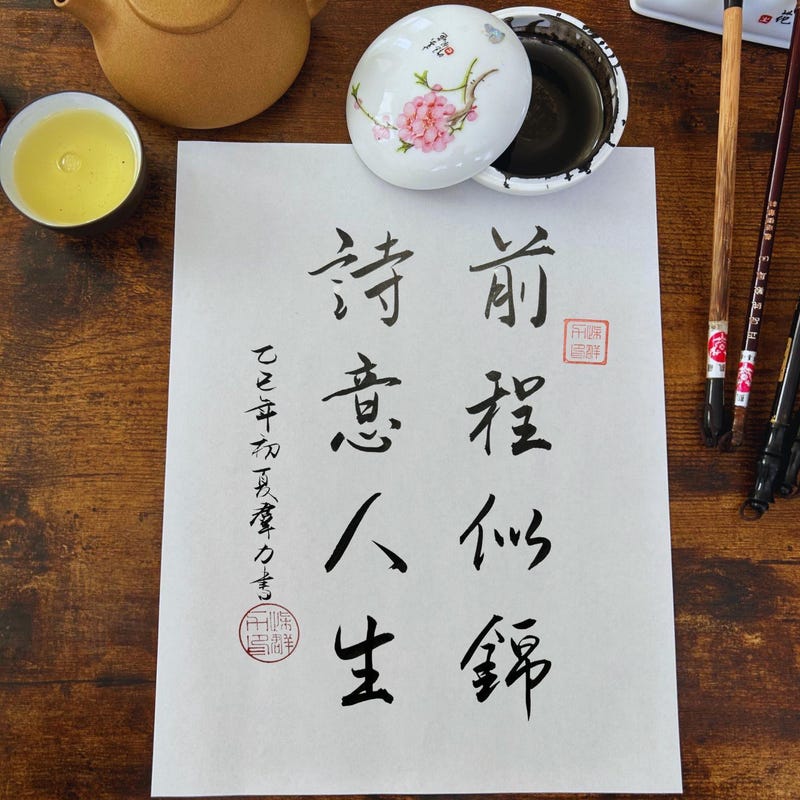 前程似錦
詩意人生
乙巳年初夏群力書